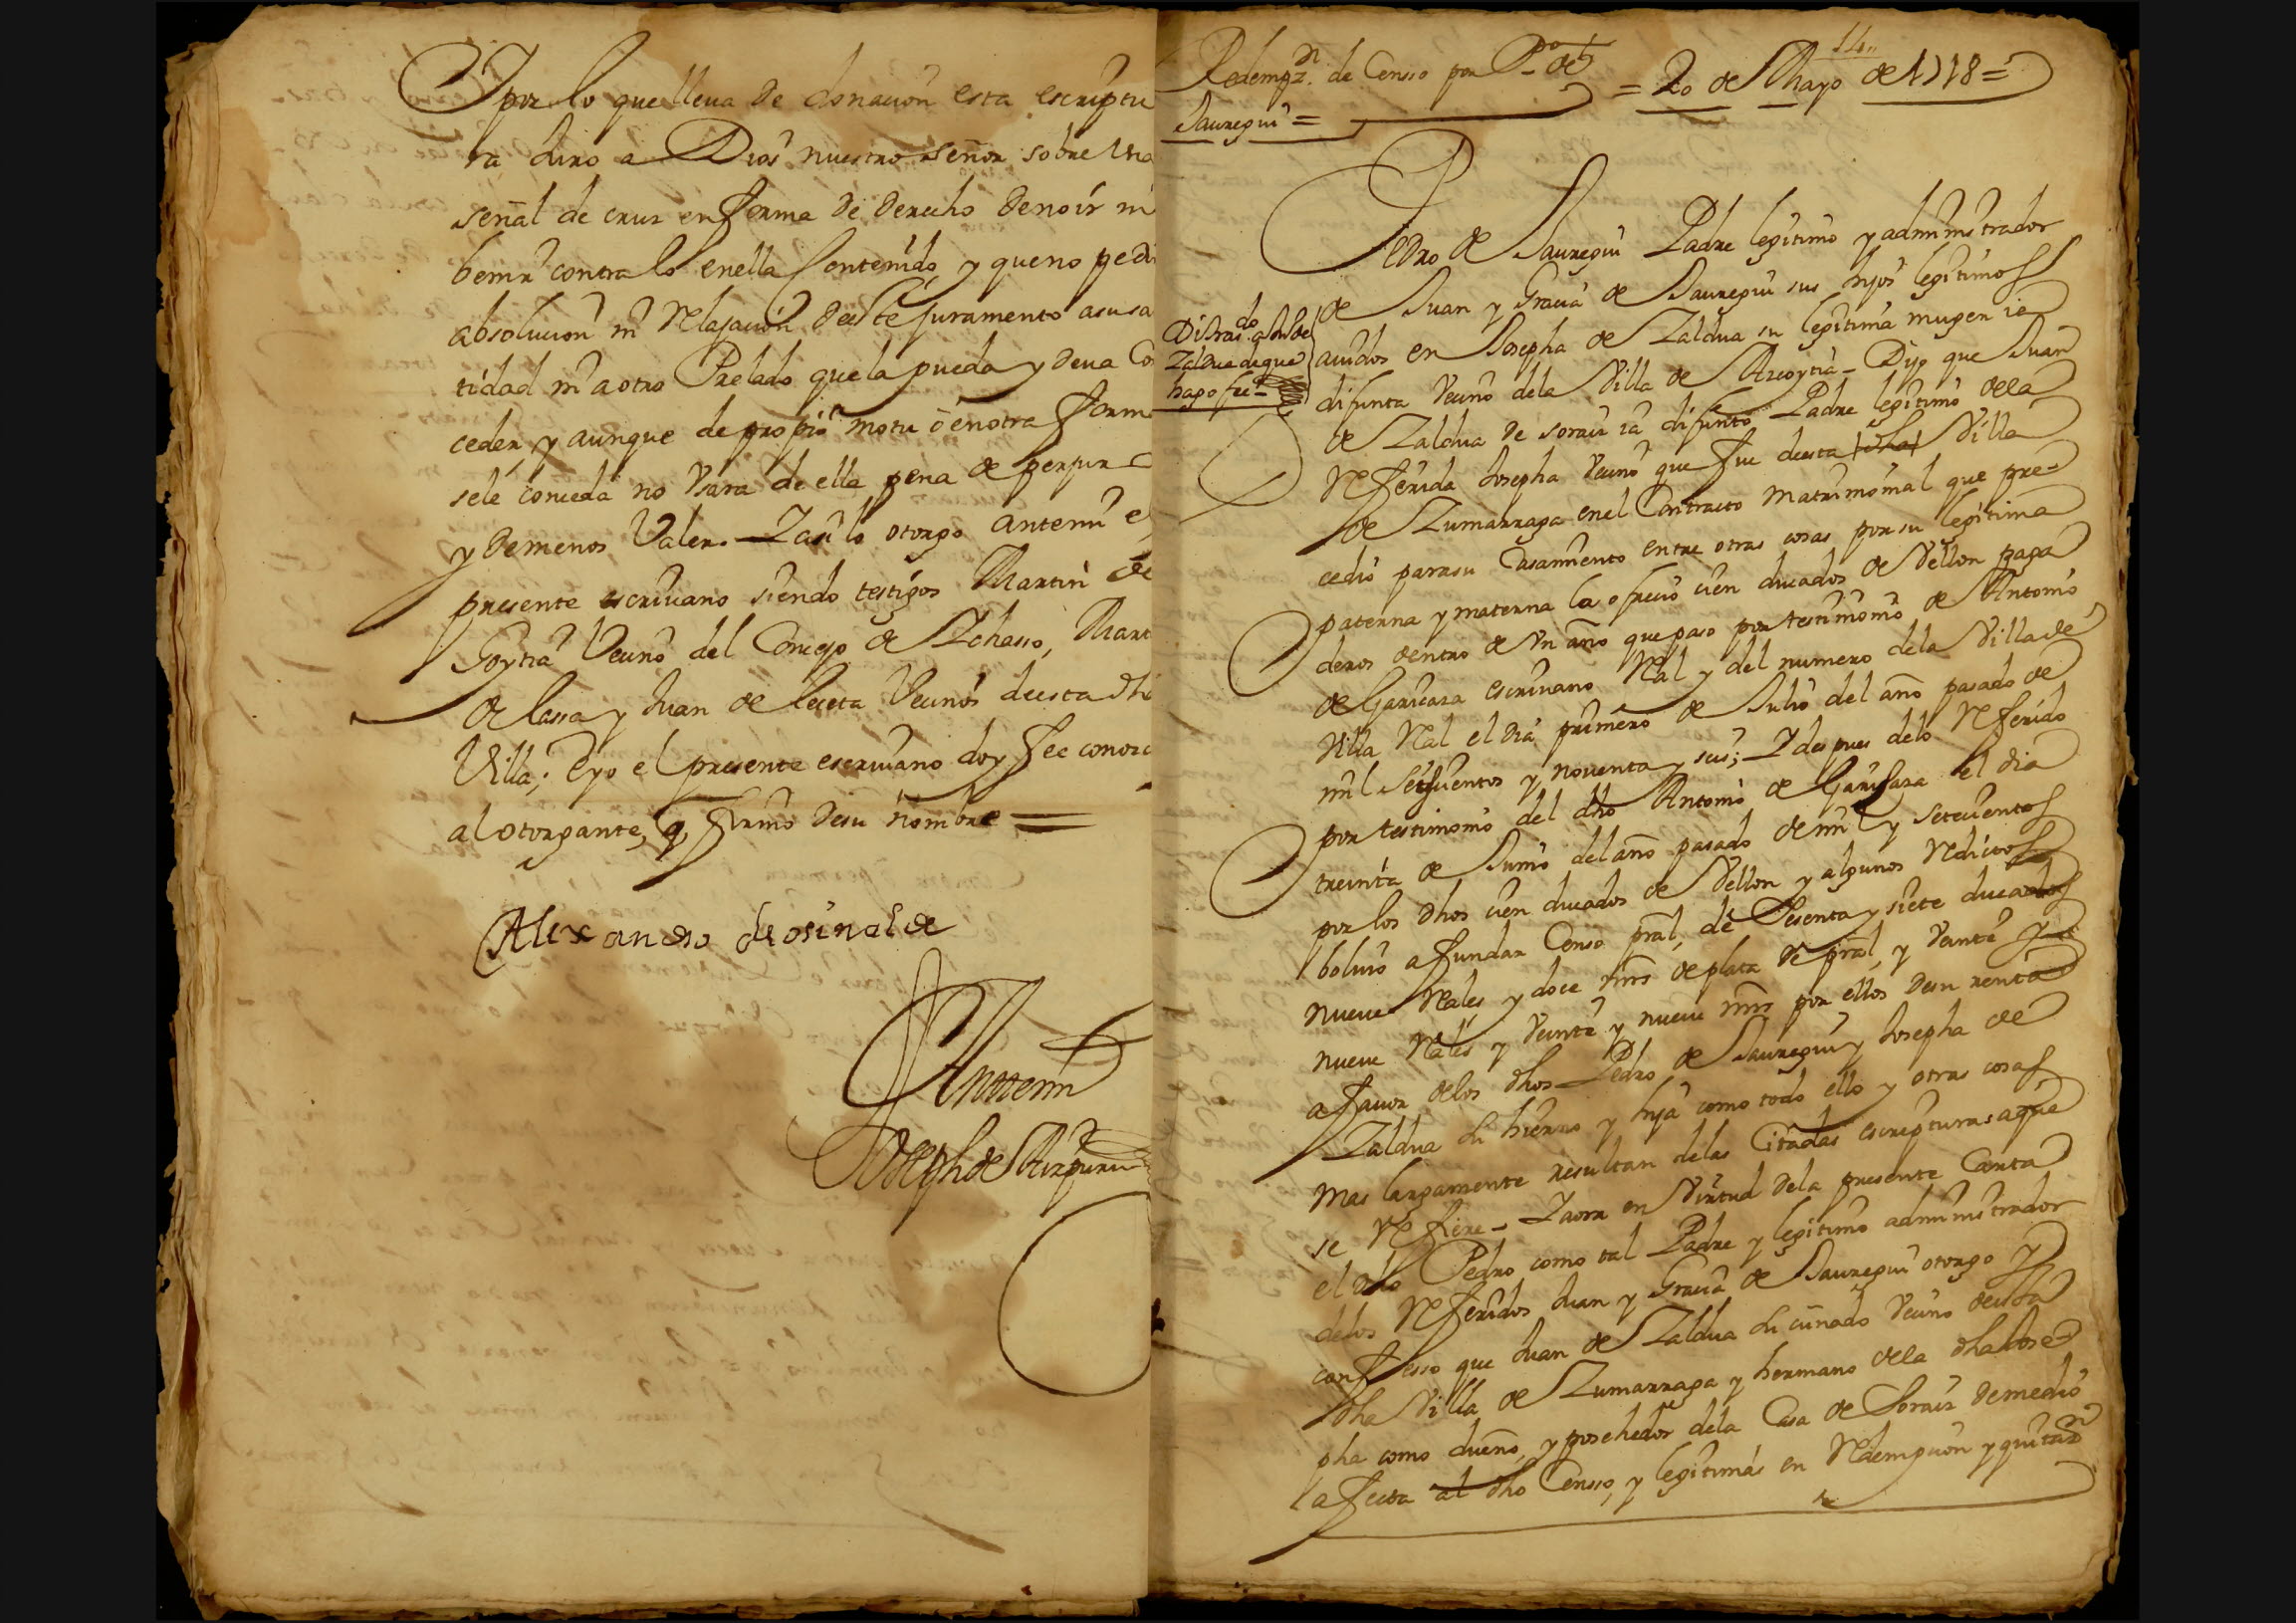 Y por lo que lleua de donacion esta escriptu
ra Juro a Dios nuestro señor sobre Vna
señal de cruz en forma de derecho de no ir ni
benir contra lo enella Contenido, y que no pedi
absolucion ni Relajacion deeste juramento asu sa
tidad ni a otro Prelado que la pueda y deua Con
ceder y aunque de propio motu o en otra forma
sele conceda no Vsara de ella pena de perjuro
y de menos Valer. Yasi lo otorgo antemi el
presente escriuano siendo testigos Martin de
Goytia Vecino del Concejo de Ychasso, Mart
de lassa y Juan de leceta Vecinos deesta dha
Villa; Eyo el presente escriuano doy fee conozc
al otorgante, q firmo desu nombre =
Alexandro de osinalde
Antemi
Joseph de Aizpuru
14
Redempon. de Censo por Po. de
Jauregui =
= 20 de Mayo de 1718 =
Pedro de Jauregui Padre legitimo y administrador
de Juan y Gracia de Jauregui sus hijos legitimos
auidos en Josepha de Zaldua su legitima muger ia
difunta Vecino dela Villa de Azcoytia - Dijo que Juan
de Zaldua de soraiz ia difunto Padre legitimo dela
Referida Josepha Vecino que fue deesta dha Villa
de Zumarraga enel Contracto matrimonial que pre-
cedio parasu Casamiento entre otras cosas por su legitima
paterna y materna la ofrecio cien ducados de Vellon paga
deros dentro de Vn año que paso por testimonio de Antonio
de Garicaza escriuano Real y del numero dela Villa de
Villa Real el dia primero de Julio del año pasado de
mil Seiscientos y nouenta y seis; Y despues delo Referido
por testimonio del dho Antonio de Garicaza el dia
treinta de Junio del año pasado de mil y setecientos
por los dhos cien ducados de Vellon y algunos Reditos
boluio a fundar Censo pral, de Sesenta y siete ducados
nueue Reales y doce mrs de plata de pral, y Veinte y
nueue Rales y Veinte y nueue mrs por ellos desu renta
afauor delos dhos Pedro de Jauregui y Josepha de
Zaldua su hierno y hija como todo ello y otras cosas
mas largamente resultan delas Citadas escripturas aque
se Refiere - Yaora en Virtud dela presente Carta
el dho Pedro como tal Padre y legitimo administrador
delos Referidos Juan y Gracia de Jauregui otorgo y
confesso que Juan de Zaldua su cuñado Vecino deesta
dha Villa de Zumarraga y hermano dela dha Jose
pha como dueño, y posehedor dela Casa de Soraiz demedio
afecta al dho Censo, y legitimas en Redempcion y quitaon
do
Distrai. a Ju de
Zaldua deque
hago fee -